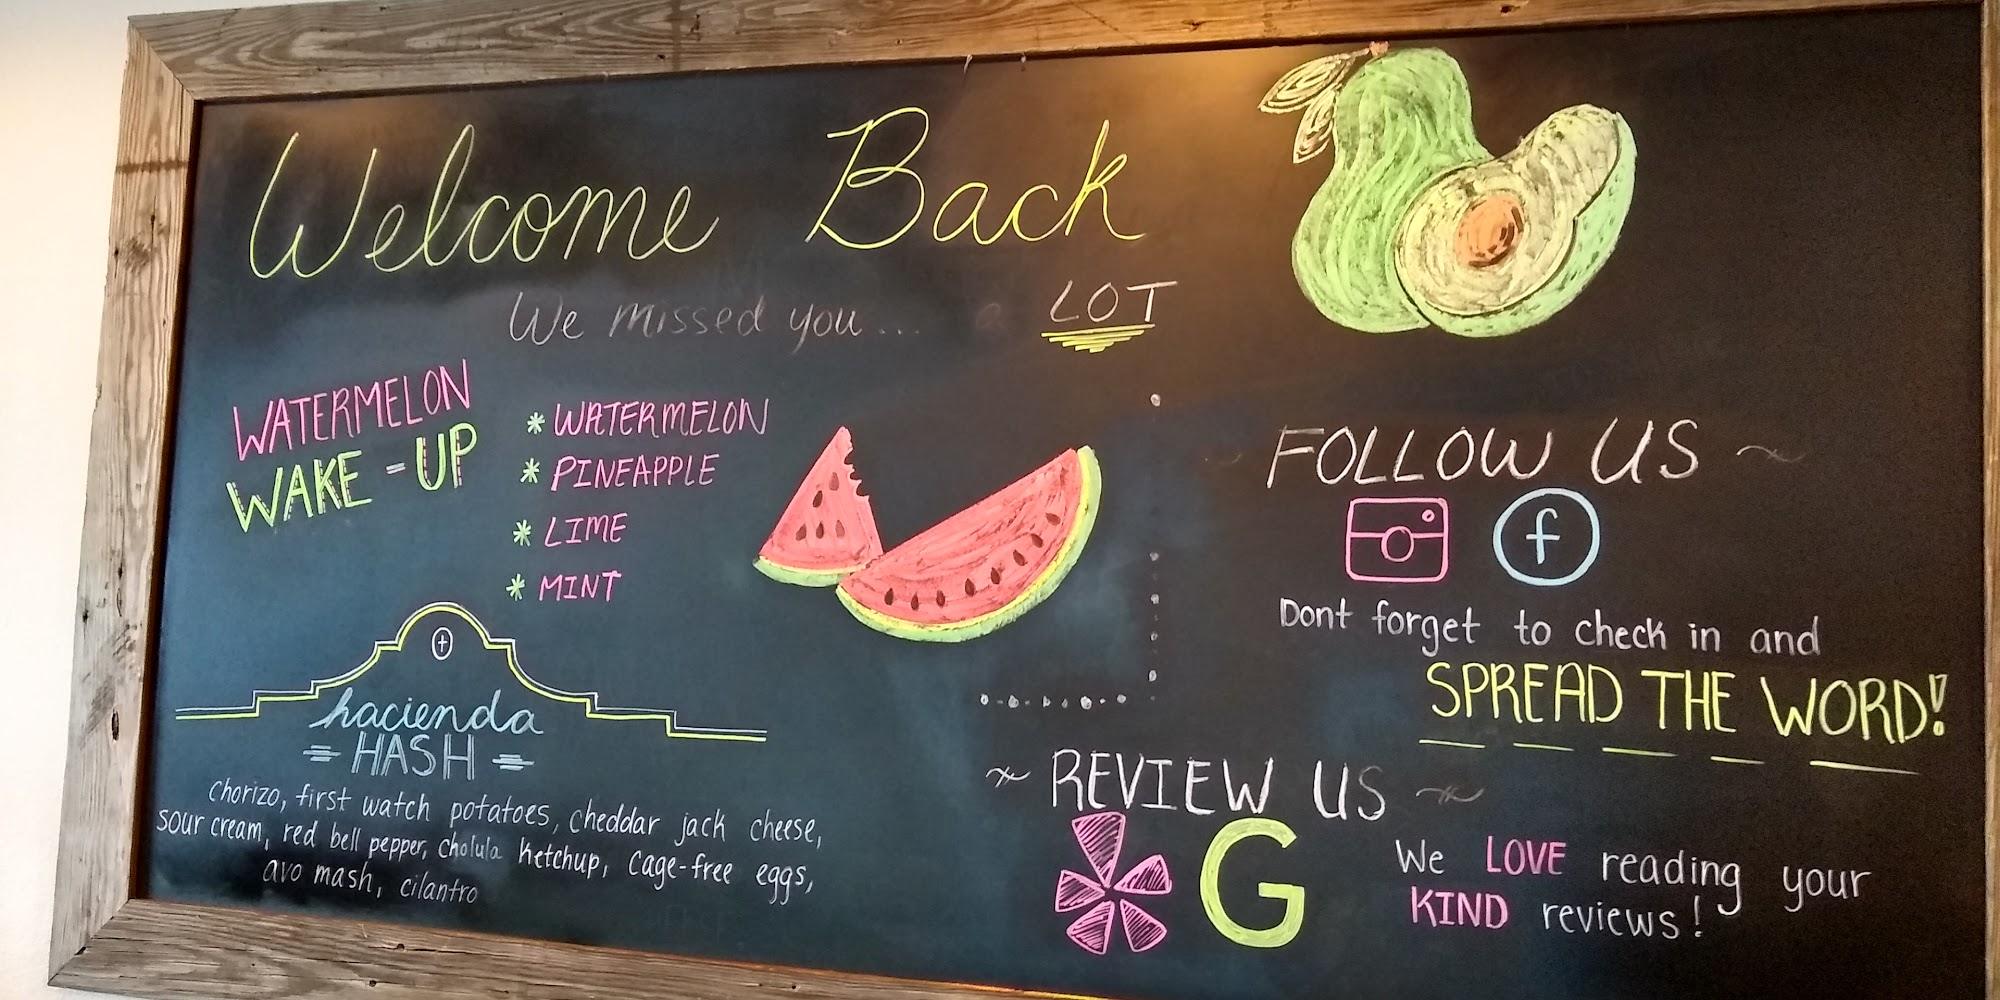 Welcome Back
We missed you... a LOT
WATERMELON
WAKE-UP
* WATERMELON
* PINEAPPLE
* LIME
* MINT
hacienda
= HASH =
chorizo, first watch potatoes, cheddar jack cheese,
sour cream, red bell pepper, cholula ketchup, cage-free eggs,
avo mash, cilantro
~ FOLLOW US ~
f
Dont forget to check in and
SPREAD THE WORD!
~ REVIEW US ~
G
We LOVE reading your
KIND reviews!